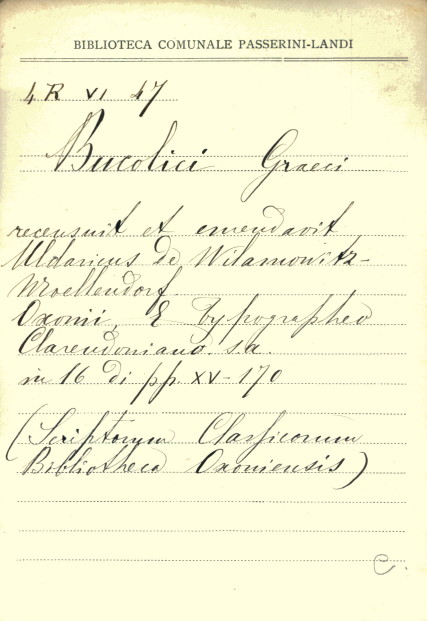 BIBLIOTECA COMUNALE PASSERINI-LANDI
4 R VI 47
Bucolici Graeci
recensuit et emendavit
Udaricus de Wilamowitz-
Moellendorf
Oxonii, E typographeo
Clarendoniano. s.a.
in 16 di pp. XV-170
(Scriptorum Classicorum
Bibliotheca Oxoniensis)
C.